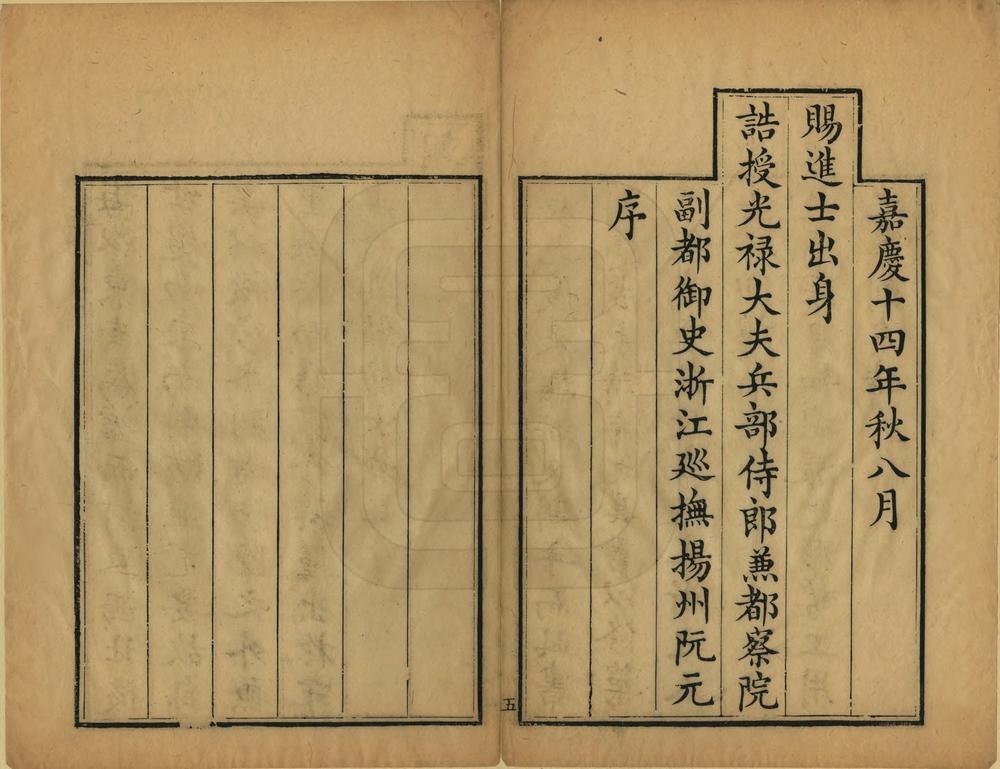 嘉慶十四年秋八月
賜進士出身
誥授光禄大夫兵部侍郎兼都察院
副都御史浙江廵撫揚州阮元
序
五